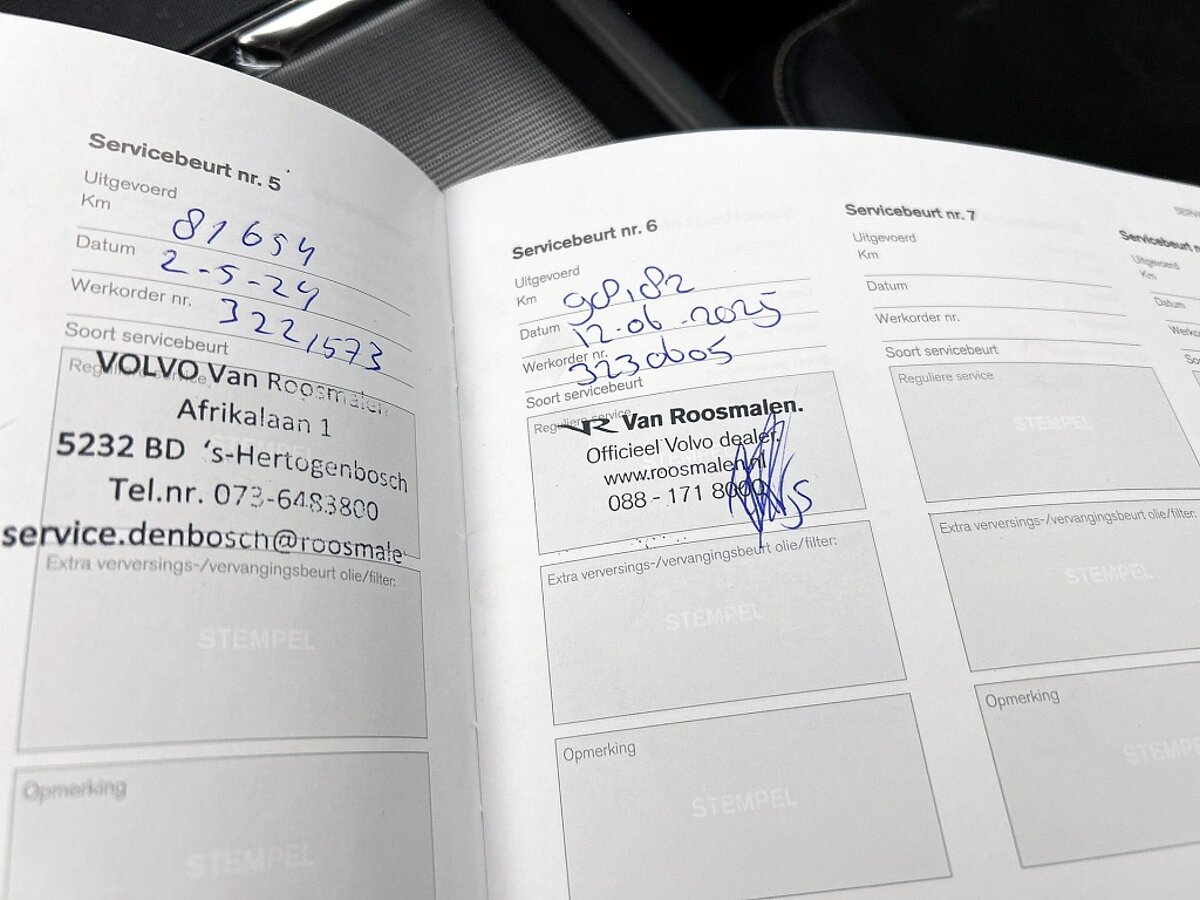 Servicebeurt nr. 5
Uitgevoerd
Km 81654
Datum 2-5-24
Werkorder nr. 3221573
Soort servicebeurt
Reguliere service
VOLVO Van Roosmalen
Afrikalaan 1
5232 BD 's-Hertogenbosch
Tel.nr. 073-6483800
service.denbosch@roosmale
Extra verversings-/vervangingsbeurt olie/filter:
STEMPEL
Opmerking
STEMPEL
Servicebeurt nr. 6
Uitgevoerd
Km 98182
Datum 12-06-2025
Werkorder nr. 3230605
Soort servicebeurt
Reguliere service
VR Van Roosmalen.
Officieel Volvo dealer.
www.roosmalen.nl
088 - 171 8000
Extra verversings-/vervangingsbeurt olie/filter:
STEMPEL
Opmerking
STEMPEL
Servicebeurt nr. 7
Uitgevoerd
Km
Datum
Werkorder nr.
Soort servicebeurt
Reguliere service
STEMPEL
Extra verversings-/vervangingsbeurt olie/filter:
STEMPEL
Opmerking
STEMPEL
Servicebeurt n
Uitgevoerd
Km
Datum
Werko
So